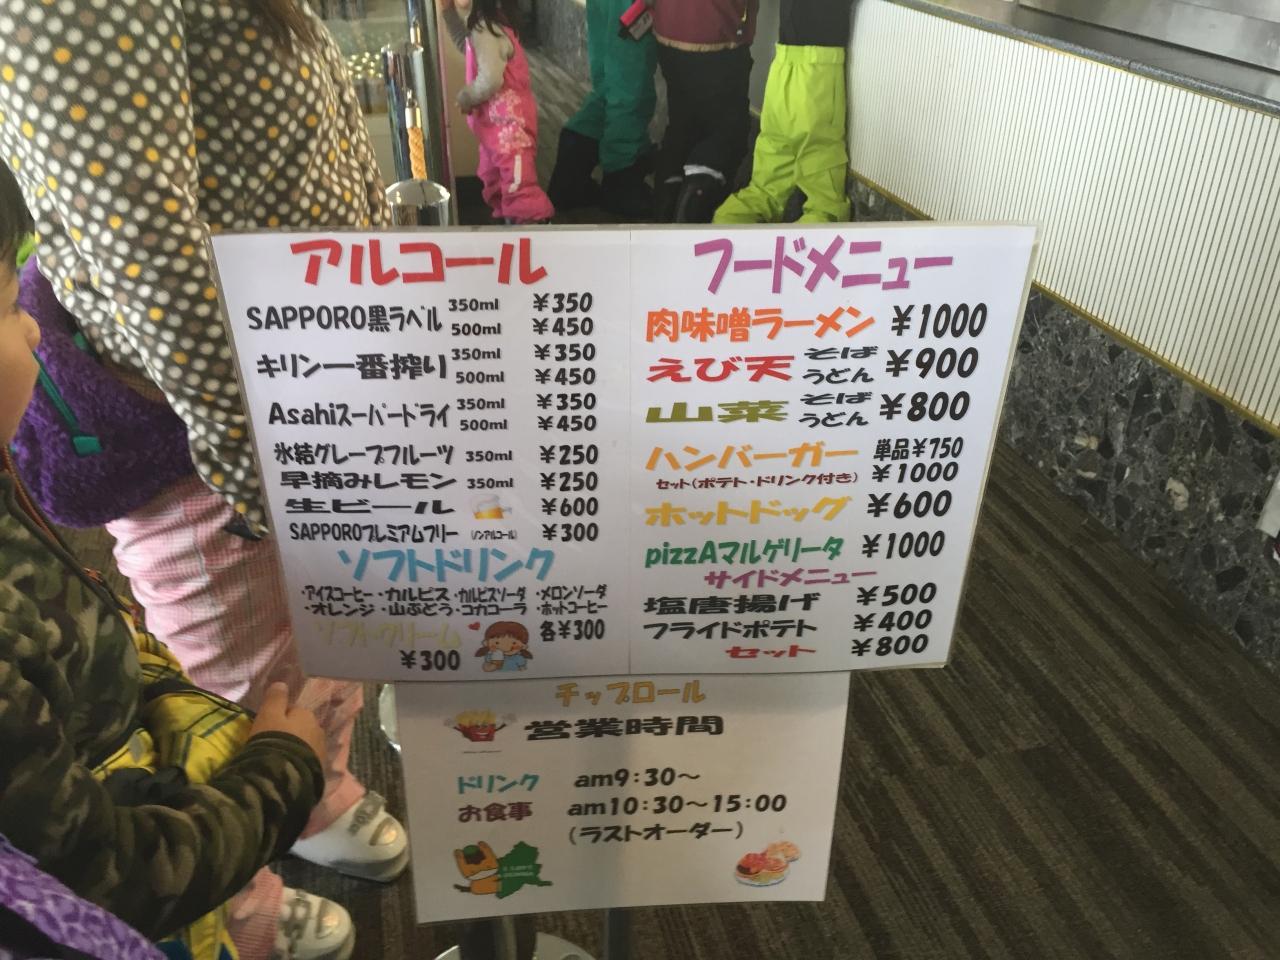 アルコール
SAPPORO黒ラベル 350ml ¥350
500ml ¥450
キリン一番搾り 350ml ¥350
500ml ¥450
Asahiスーパードライ 350ml ¥350
500ml ¥450
氷結グレープフルーツ 350ml ¥250
早摘みレモン 350ml ¥250
生ビール ¥600
SAPPOROプレミアムフリー (ノンアルコール) ¥300
ソフトドリンク
・アイスコーヒー・カルピス・カルピスソーダ・メロンソーダ
・オレンジ・山ぶどう・コカコーラ・ホットコーヒー
各¥300
ソフトクリーム
¥300
フードメニュー
肉味噌ラーメン ¥1000
えび天 そば うどん ¥900
山菜 そば うどん ¥800
ハンバーガー 単品¥750
セット(ポテト・ドリンク付き) ¥1000
ホットドッグ ¥600
pizzAマルゲリータ ¥1000
サイドメニュー
塩唐揚げ ¥500
フライドポテト ¥400
セット ¥800
チップロール
営業時間
ドリンク am9:30～
お食事 am10:30～15:00
(ラストオーダー)